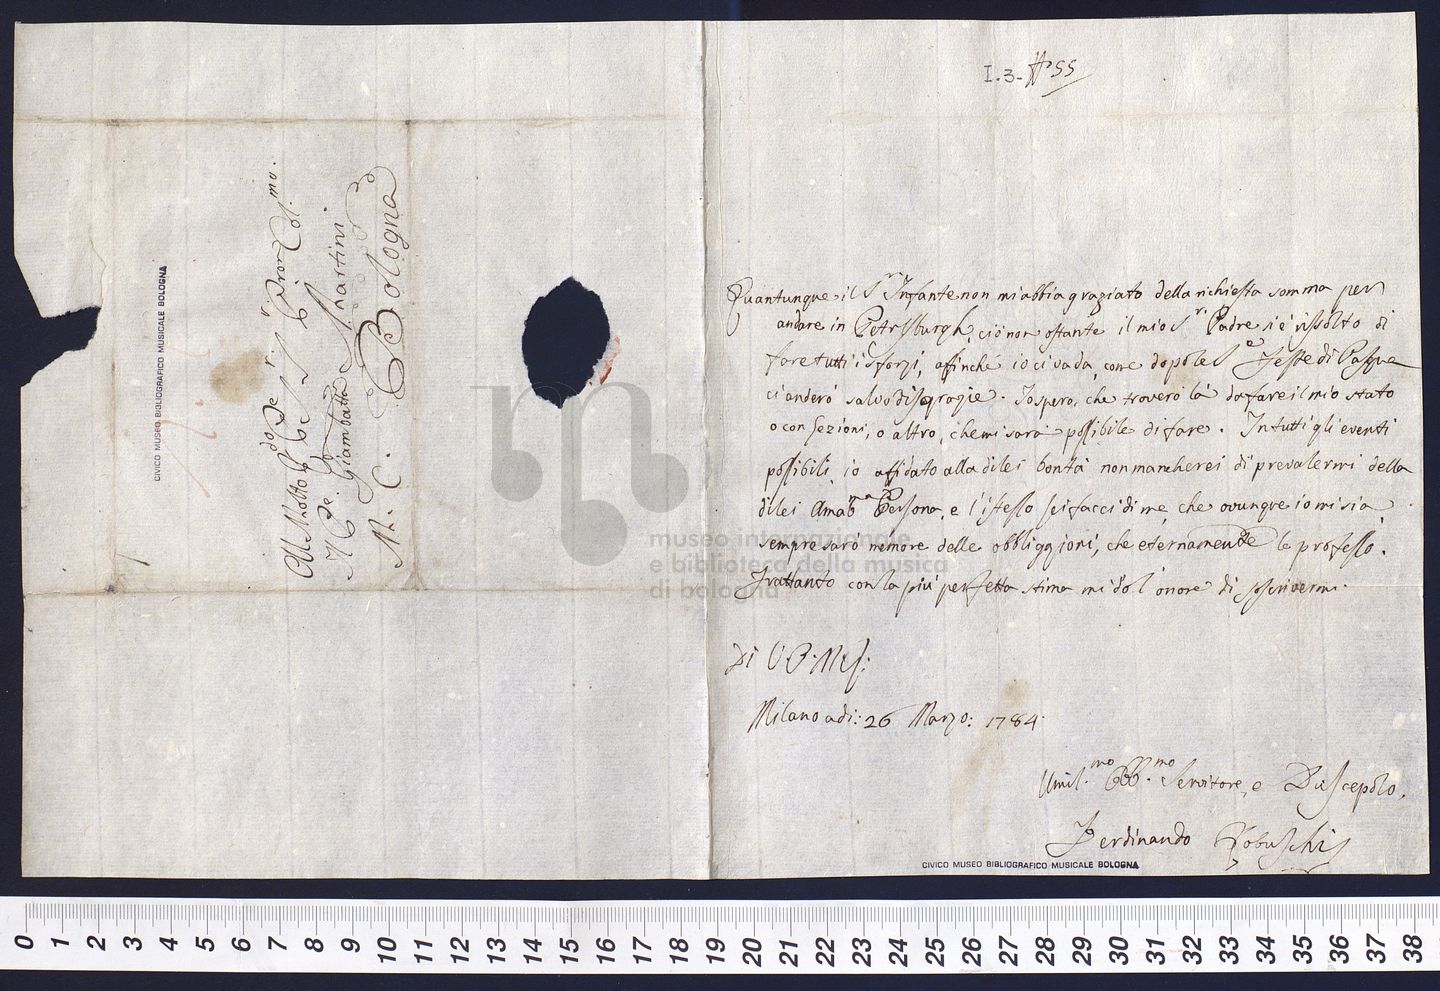 I. 3. #55
Quantunque il S.r Infante non mi abbia graziato della richiesta somma per
andare in Petersburgh, ciò non ostante il mio S.r Padre si è rissolto di
fare tutti i sforzi, affinché io ci vada, come dopo le S.e Feste di Pasqua
ci anderò salvo disgrazie. Io spero, che troverò là da fare il mio stato
o con Lezioni, o altro, che mi sarà possibile di fare. In tutti gli eventi
possibili, io affidato alla di lei bontà non mancherei di prevalermi della
di lei Amab.ma Persona, e l'istesso lei facci di me, che ovunque io mi sia
sempre sarò memore delle obbliggioni, che eternamente le professo.
Frattanto con la più perfetta stima mi dò l'onore di soscrivermi.
Di V. P. M.
Milano adi: 26 Marzo: 1784.
Umil.mo Obb.mo Servitore, e Discepolo,
Ferdinando Robuschi
CIVICO MUSEO BIBLIOGRAFICO MUSICALE BOLOGNA
Al Molto Re.do Pre.
Pron Col.mo
Il Pre. Giambatta Martini
M. C. Bologna
CIVICO MUSEO BIBLIOGRAFICO MUSICALE BOLOGNA
museo internazionale
e biblioteca della musica
di bologna
0 1 2 3 4 5 6 7 8 9 10 11 12 13 14 15 16 17 18 19 20 21 22 23 24 25 26 27 28 29 30 31 32 33 34 35 36 37 38